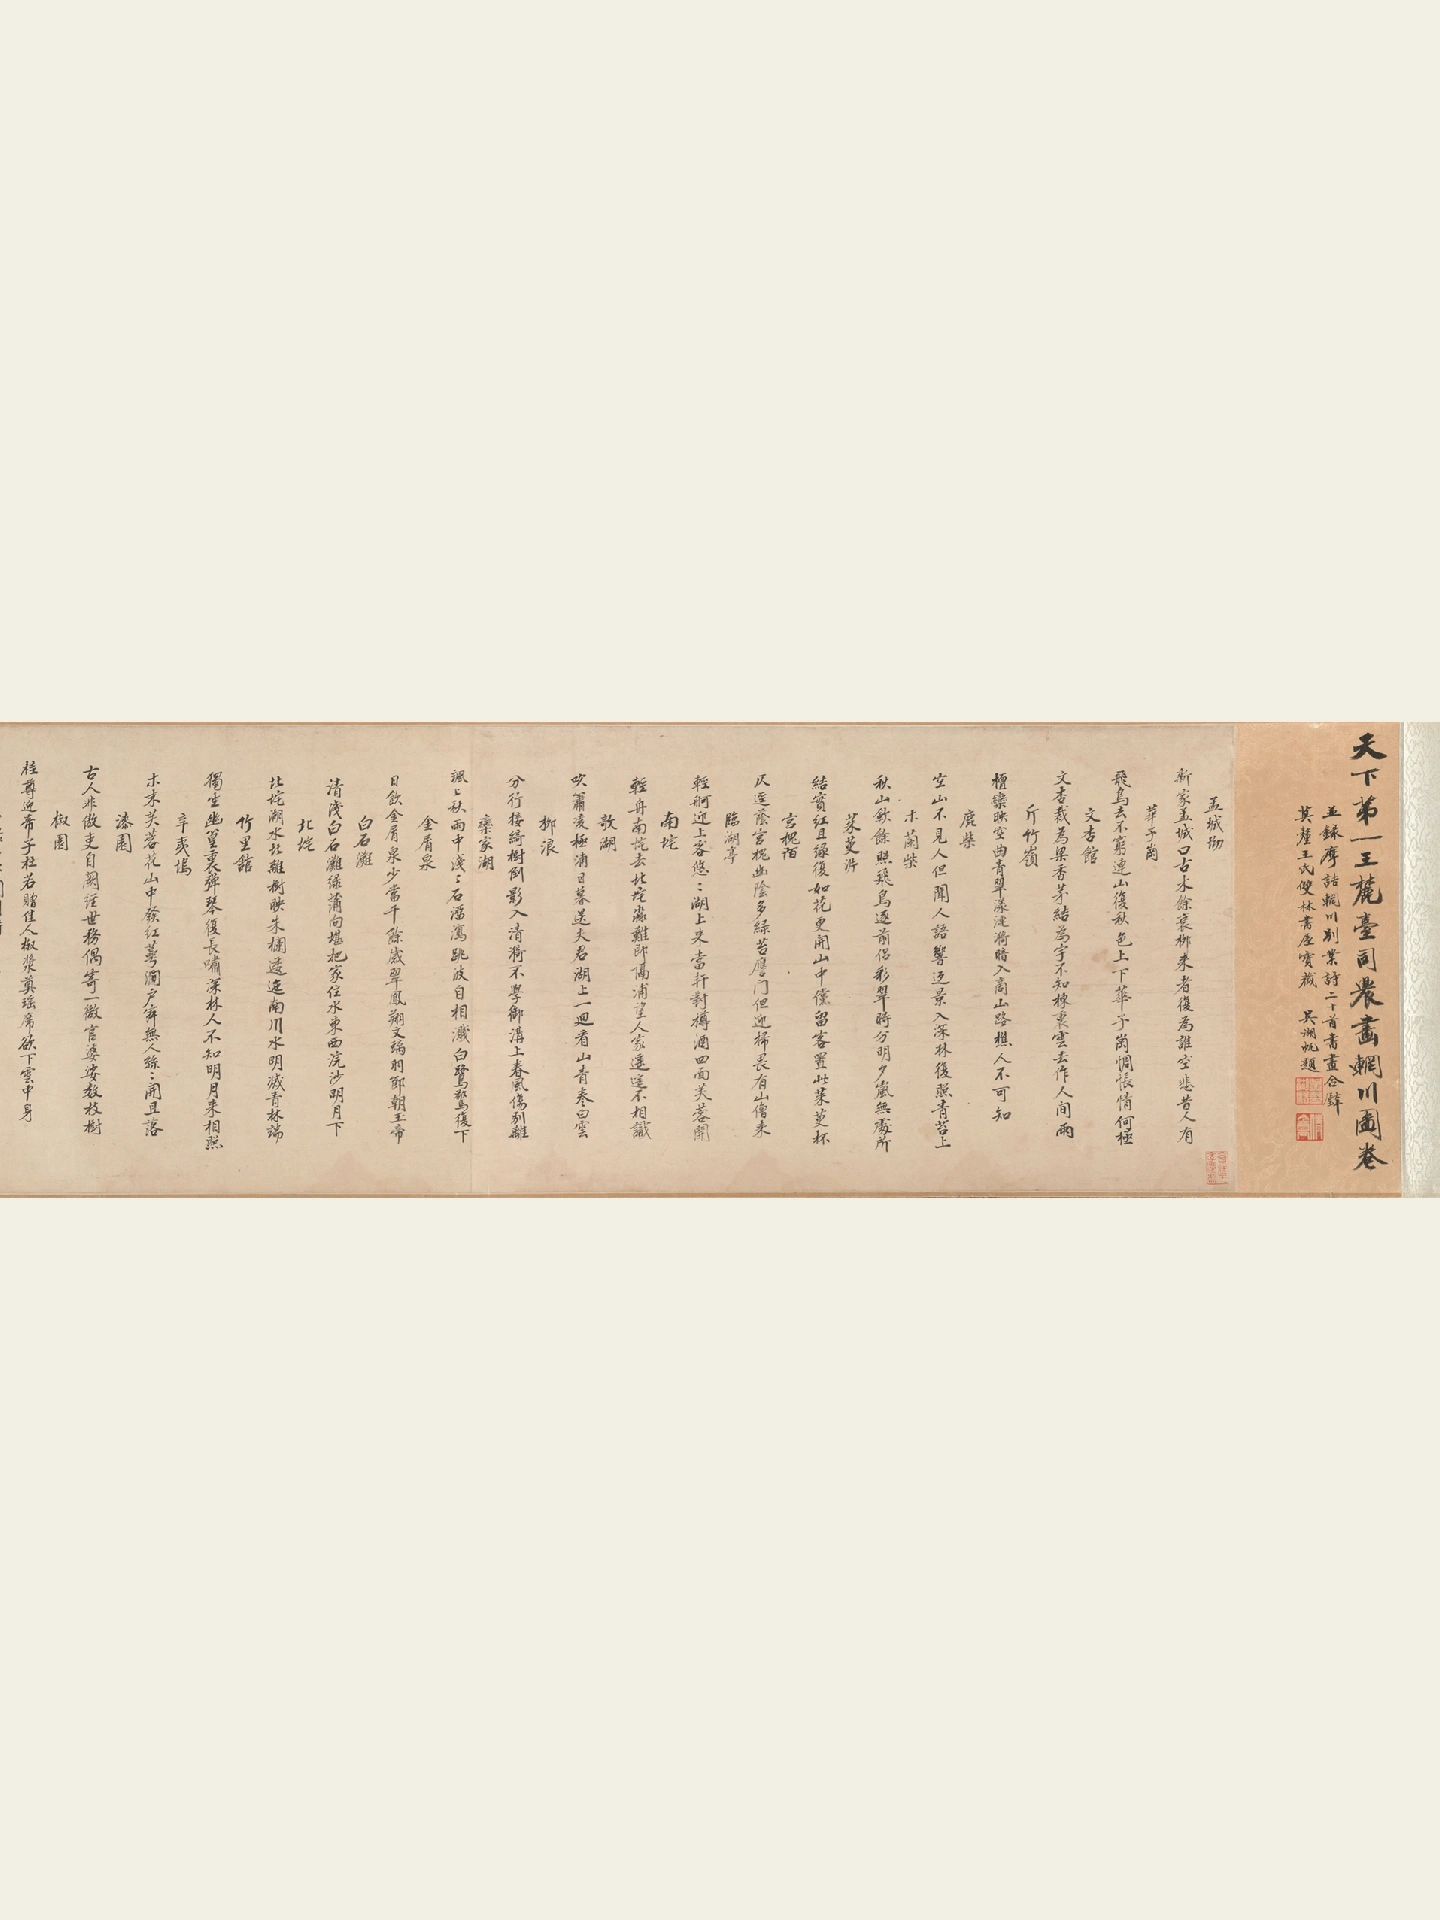 天下第一王麓臺司農畫輞川圖卷
并錄摩詰輞川別業詩二十首書畫合璧
莫釐王氏雙林書屋寶藏 吳湖帆題
孟城坳
新家孟城口古木餘衰柳来者復為誰空悲昔人有
華子崗
飛鳥去不窮連山復秋色上下華子崗惆悵情何極
文杏館
文杏裁為梁香茅結為宇不知棟裏雲去作人间雨
斤竹嶺
檀欒映空曲青翠漾漣漪暗入商山路樵人不可知
鹿柴
空山不見人但聞人語響返景入深林復照青苔上
木蘭柴
秋山歛餘照飛鳥逐前侣彩翠時分明夕嵐無處所
茱萸沜
結實紅且緑復如花更開山中儻留客置此茱萸杯
宮槐陌
仄逕蔭宮槐幽陰多緑苔應門但迎掃畏有山僧来
臨湖亭
輕舸迎上客悠〻湖上来當軒對樽酒四面芙蓉開
南垞
輕舟南垞去北垞淼難即隔浦望人家遥遥不相識
欹湖
吹簫凌極浦日暮送夫君湖上一迴看山青卷白雲
柳浪
分行接綺樹倒影入清漪不學御溝上春風傷别離
欒家湖
颯〻秋雨中淺〻石溜瀉跳波自相濺白鷺驚復下
金屑泉
日飲金屑泉少當千餘歲翠鳳翔文螭羽節朝玉帝
白石灘
清淺白石灘緑蒲向堪把家住水東西浣沙明月下
北垞
北垞湖水北雜樹映朱欄逶迤南川水明滅青林端
竹里館
獨坐幽篁裏彈琴復長嘯深林人不知明月来相照
辛夷塢
木末芙蓉花山中發紅萼澗户寂無人絲〻開且落
漆園
古人非傲吏自闕經世務偶寄一微官婆娑数枝樹
椒園
桂尊迎帝子杜若贈佳人椒漿奠瑶席欲下雲中君